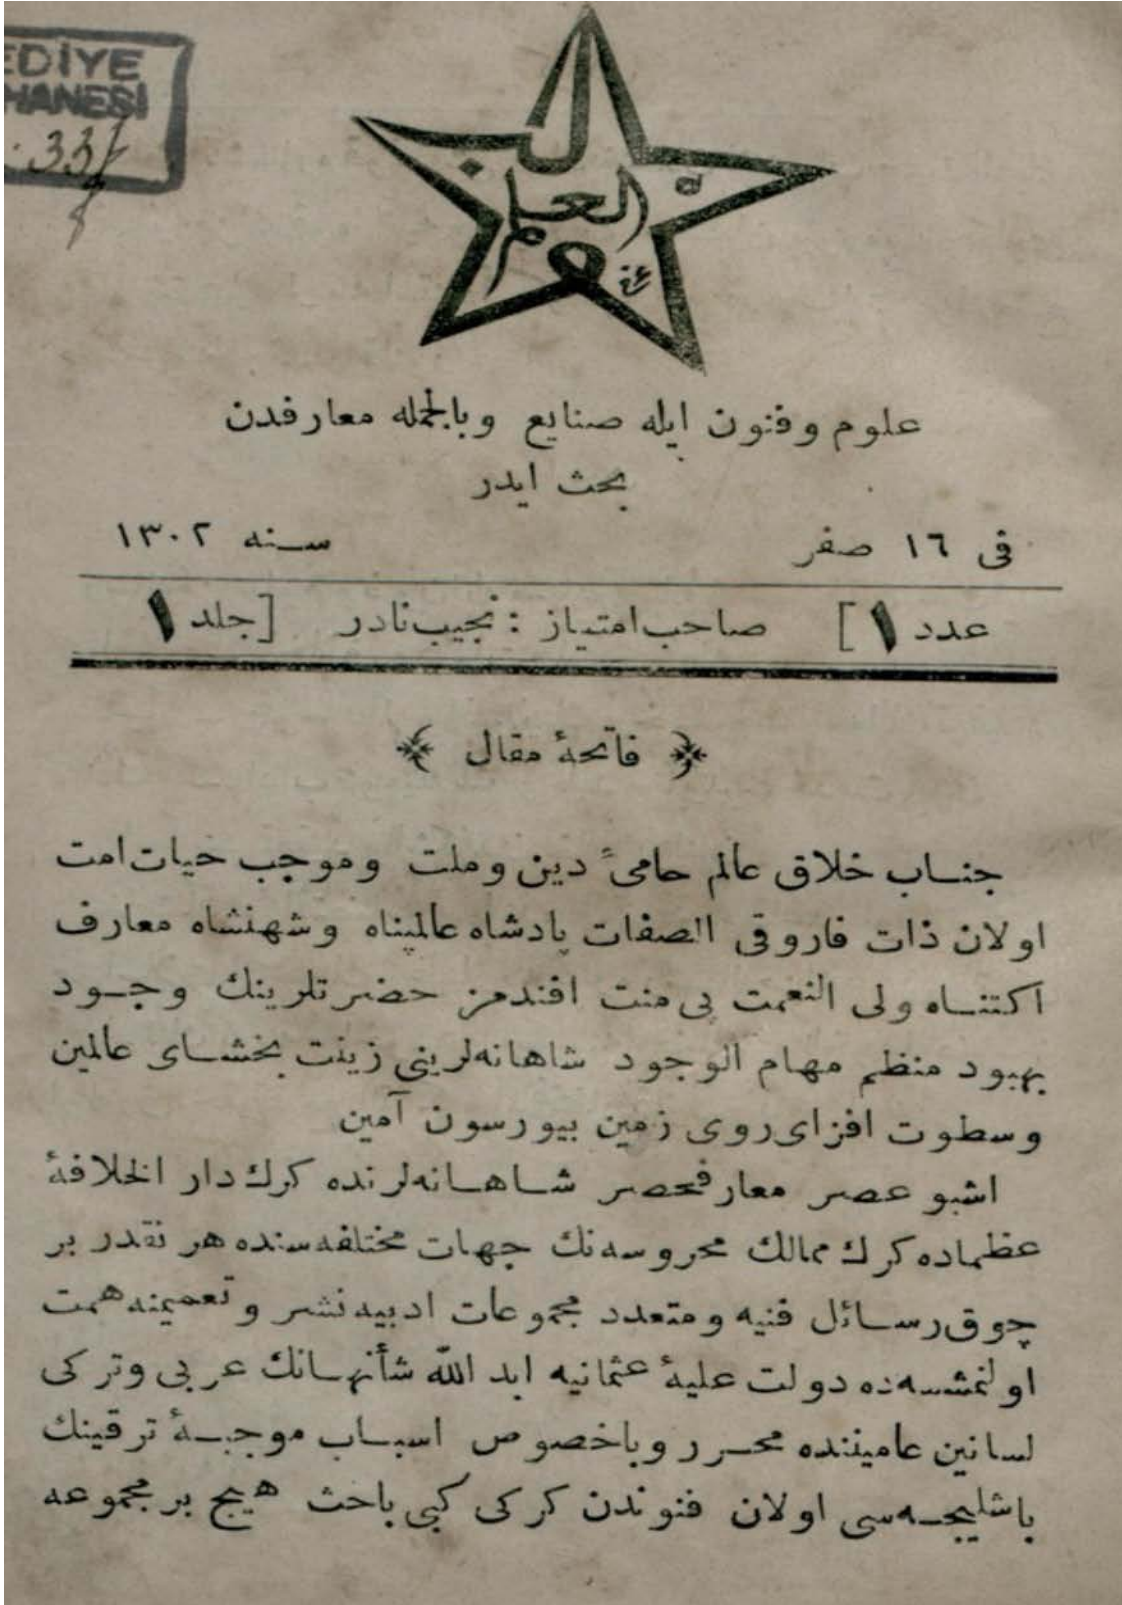 EDİYE
HANESİ
العلم
علوم وفنون ايله صنايع وبالجمله معارفدن
بحث ايدر
فى ١٦ صفر سنه ١٣٠٢
عدد ١] صاحب امتياز : نجيب نادر [جلد ١
فاتحهٔ مقال
جناب خلاق عالم حامىٔ دين وملت وموجب حيات امت
اولان ذات فاروقى الصفات پادشاه عالمپناه وشهنشاه معارف
اكتناه ولى النعمت بى منت افندمز حضرتلرينك وجود
بهبود منظم مهام الوجود شاهانه‌لرينى زينت بخشاى عالمين
وسطوت افزاى روى زمين بيورسون آمين
اشبو عصر معارفحصر شاهانه‌لرنده كرك دار الخلافهٔ
عظماده كرك ممالك محروسه‌نك جهات مختلفه‌سنده هر نقدر بر
چوق رسائل فنيه ومتعدد مجموعات ادبيه نشر وتعميمنه همت
اولنمشسه‌ده دولت عليهٔ عثمانيه ابد الله شأنهانك عربى وتركى
لسانين عاميننده محرر وباخصوص اسباب موجبهٔ ترقينك
باشليجه‌سى اولان فنوندن كركى كبى باحث هيچ بر مجموعه